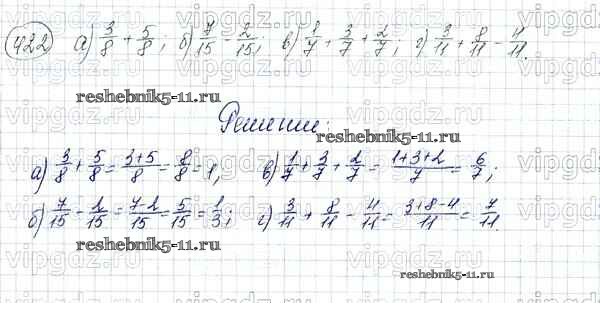 422 а) 3/8 + 5/8; б) 7/15 - 2/15; в) 1/7 + 3/7 + 2/7; г) 3/11 + 8/11 - 4/11.
reshebnik5-11.ru
Решение:
reshebnik5-11.ru
а) 3/8 + 5/8 = (3+5)/8 = 8/8 = 1; в) 1/7 + 3/7 + 2/7 = (1+3+2)/7 = 6/7;
б) 7/15 - 2/15 = (7-2)/15 = 5/15 = 1/3; г) 3/11 + 8/11 - 4/11 = (3+8-4)/11 = 7/11.
reshebnik5-11.ru
vipgdz.com